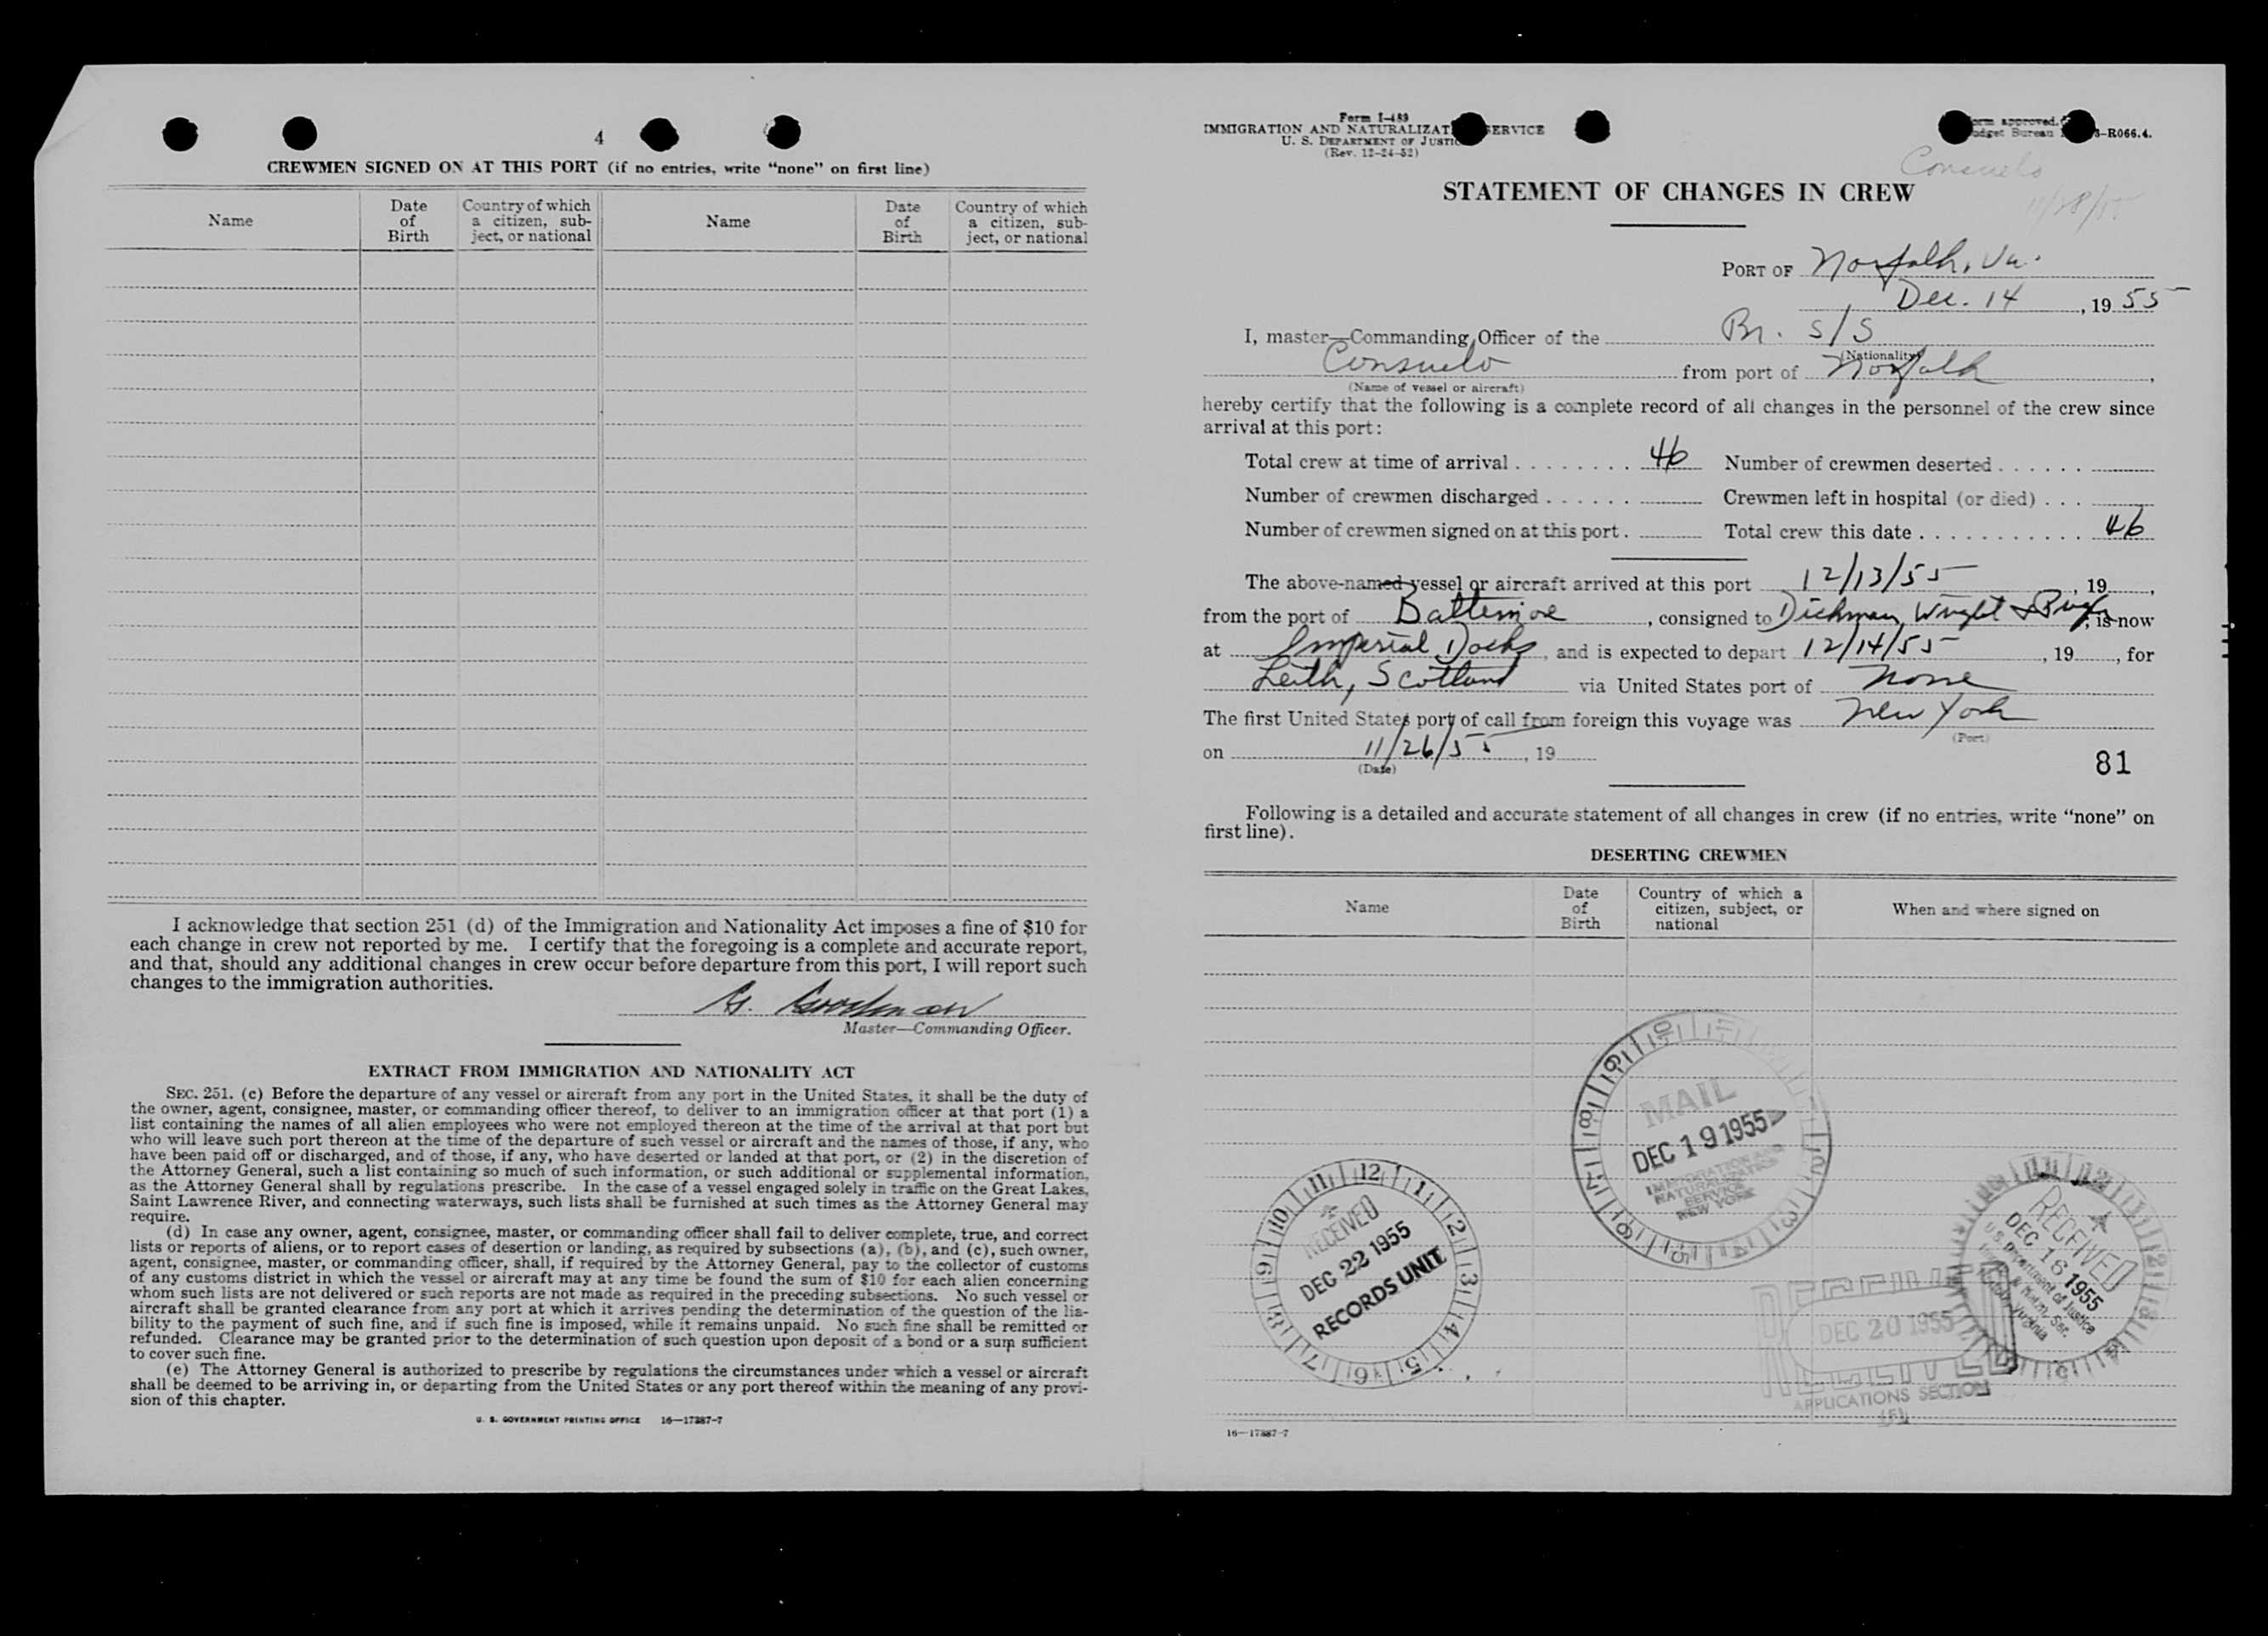 4
CREWMEN SIGNED ON AT THIS PORT (if no entries, write "none" on first line)
Name
Date of Birth
Country of which a citizen, sub-ject, or national
Name
Date of Birth
Country of which a citizen, sub-ject, or national
I acknowledge that section 251 (d) of the Immigration and Nationality Act imposes a fine of $10 for
each change in crew not reported by me. I certify that the foregoing is a complete and accurate report,
and that, should any additional changes in crew occur before departure from this port, I will report such
changes to the immigration authorities.
G.
Master—Commanding Officer.
EXTRACT FROM IMMIGRATION AND NATIONALITY ACT
SEC. 251. (c) Before the departure of any vessel or aircraft from any port in the United States, it shall be the duty of
the owner, agent, consignee, master, or commanding officer thereof, to deliver to an immigration officer at that port (1) a
list containing the names of all alien employees who were not employed thereon at the time of the arrival at that port but
who will leave such port thereon at the time of the departure of such vessel or aircraft and the names of those, if any, who
have been paid off or discharged, and of those, if any, who have deserted or landed at that port, or (2) in the discretion of
the Attorney General, such a list containing so much of such information, or such additional or supplemental information,
as the Attorney General shall by regulations prescribe. In the case of a vessel engaged solely in traffic on the Great Lakes,
Saint Lawrence River, and connecting waterways, such lists shall be furnished at such times as the Attorney General may
require.
(d) In case any owner, agent, consignee, master, or commanding officer shall fail to deliver complete, true, and correct
lists or reports of aliens, or to report cases of desertion or landing, as required by subsections (a), (b), and (c), such owner,
agent, consignee, master, or commanding officer, shall, if required by the Attorney General, pay to the collector of customs
of any customs district in which the vessel or aircraft may at any time be found the sum of $10 for each alien concerning
whom such lists are not delivered or such reports are not made as required in the preceding subsections. No such vessel or
aircraft shall be granted clearance from any port at which it arrives pending the determination of the question of the lia-
bility to the payment of such fine, and if such fine is imposed, while it remains unpaid. No such fine shall be remitted or
refunded. Clearance may be granted prior to the determination of such question upon deposit of a bond or a sum sufficient
to cover such fine.
(e) The Attorney General is authorized to prescribe by regulations the circumstances under which a vessel or aircraft
shall be deemed to be arriving in, or departing from the United States or any port thereof within the meaning of any provi-
sion of this chapter.
U. S. GOVERNMENT PRINTING OFFICE 16—17387-7
Form I-489
IMMIGRATION AND NATURALIZAT SERVICE
U. S. DEPARTMENT OF JUSTIC
(Rev. 12-24-52)
orm approved.
udget Bureau -R066.4.
Consuelo
11/28/55
STATEMENT OF CHANGES IN CREW
PORT OF Norfolk, Va.
Dec. 14, 19 55
I, master—Commanding Officer of the Br. S/S
(Nationality)
Consuelo from port of Norfolk,
(Name of vessel or aircraft)
hereby certify that the following is a complete record of all changes in the personnel of the crew since
arrival at this port:
Total crew at time of arrival . . . . . . . . 46 Number of crewmen deserted . . . . . .
Number of crewmen discharged . . . . . . Crewmen left in hospital (or died) . . .
Number of crewmen signed on at this port . Total crew this date . . . . . . . . . . . . 46
The above-named vessel or aircraft arrived at this port 12/13/55, 19,
from the port of Baltimore, consigned to Dichman, Wright & Pugh, is now
at Imperial Docks, and is expected to depart 12/14/55, 19, for
Leith, Scotland via United States port of None
The first United States port of call from foreign this voyage was New York
(Port)
on 11/26/55, 19
(Date)
81
Following is a detailed and accurate statement of all changes in crew (if no entries, write "none" on
first line).
DESERTING CREWMEN
Name
Date of Birth
Country of which a citizen, subject, or national
When and where signed on
MAIL
DEC 19 1955
IMMIGRATION AND
NATURALIZATION
SERVICE
NEW YORK
RECEIVED
DEC 22 1955
RECORDS UNIT
RECEIVED
DEC 16 1955
U.S. Department of Justice
RECEIVED
DEC 20 1955
APPLICATIONS SECTION
16—17387-7